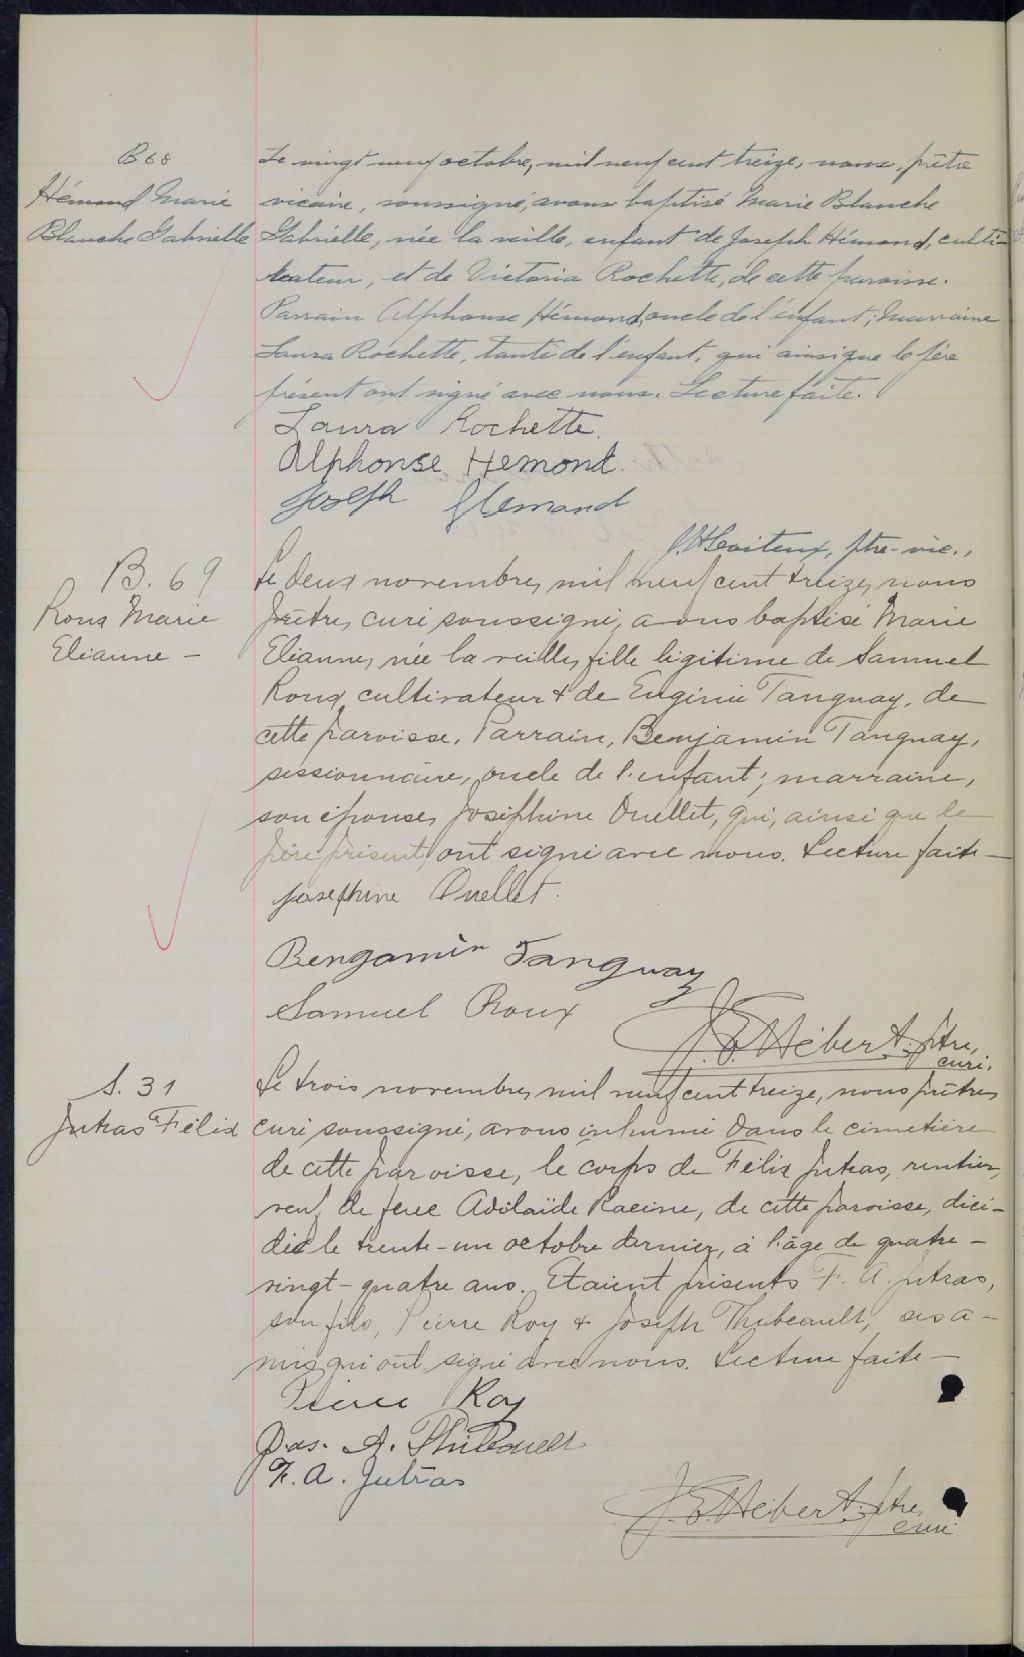 B 68
Hémond Marie
Blanche Gabrielle
Le vingt-neuf octobre, mil neuf cent treize, nous, prêtre
vicaire, soussigné, avons baptisé Marie Blanche
Gabrielle, née la veille, enfant de Joseph Hémond, culti-
vateur, et de Victoria Rochette, de cette paroisse.
Parrain Alphonse Hémond, oncle de l'enfant; Marraine
Laura Rochette, tante de l'enfant, qui ainsi que le père
présent ont signé avec nous. Lecture faite.
Laura Rochette.
Alphonse Hemond.
Joseph Hemond
ptre-vic.,
B. 69
Roux Marie
Elianne —
Le deux novembre, mil neuf cent treize, nous
prêtre, curé soussigné, avons baptisé Marie
Elianne, née la veille, fille légitime de Samuel
Roux, cultivateur & de Eugénie Tanguay, de
cette paroisse. Parrain, Benjamin Tanguay,
sessionnaire, oncle de l'enfant; marraine,
son épouse, Joséphine Ouellet, qui, ainsi que le
père présent, ont signé avec nous. Lecture faite —
Josephine Ouellet.
Bengamin Tanguay
Samuel Roux
J. E. Hébert. ptre,
curé.
S. 31
Jutras Félix
Le trois novembre, mil neuf cent treize, nous prêtre,
curé soussigné, avons inhumé dans le cimetière
de cette paroisse, le corps de Félix Jutras, rentier,
veuf de feue Adélaïde Racine, de cette paroisse, décé-
dé le trente-un octobre dernier, à l'âge de quatre-
vingt-quatre ans. Etaient présents F. A. Jutras,
son fils, Pierre Roy & Joseph Thibeault, ses a-
mis qui ont signé avec nous. Lecture faite —
Pierre Roy
Jos. A. Thibeault
F. A. Jutras
J. E. Hébert. ptre,
curé